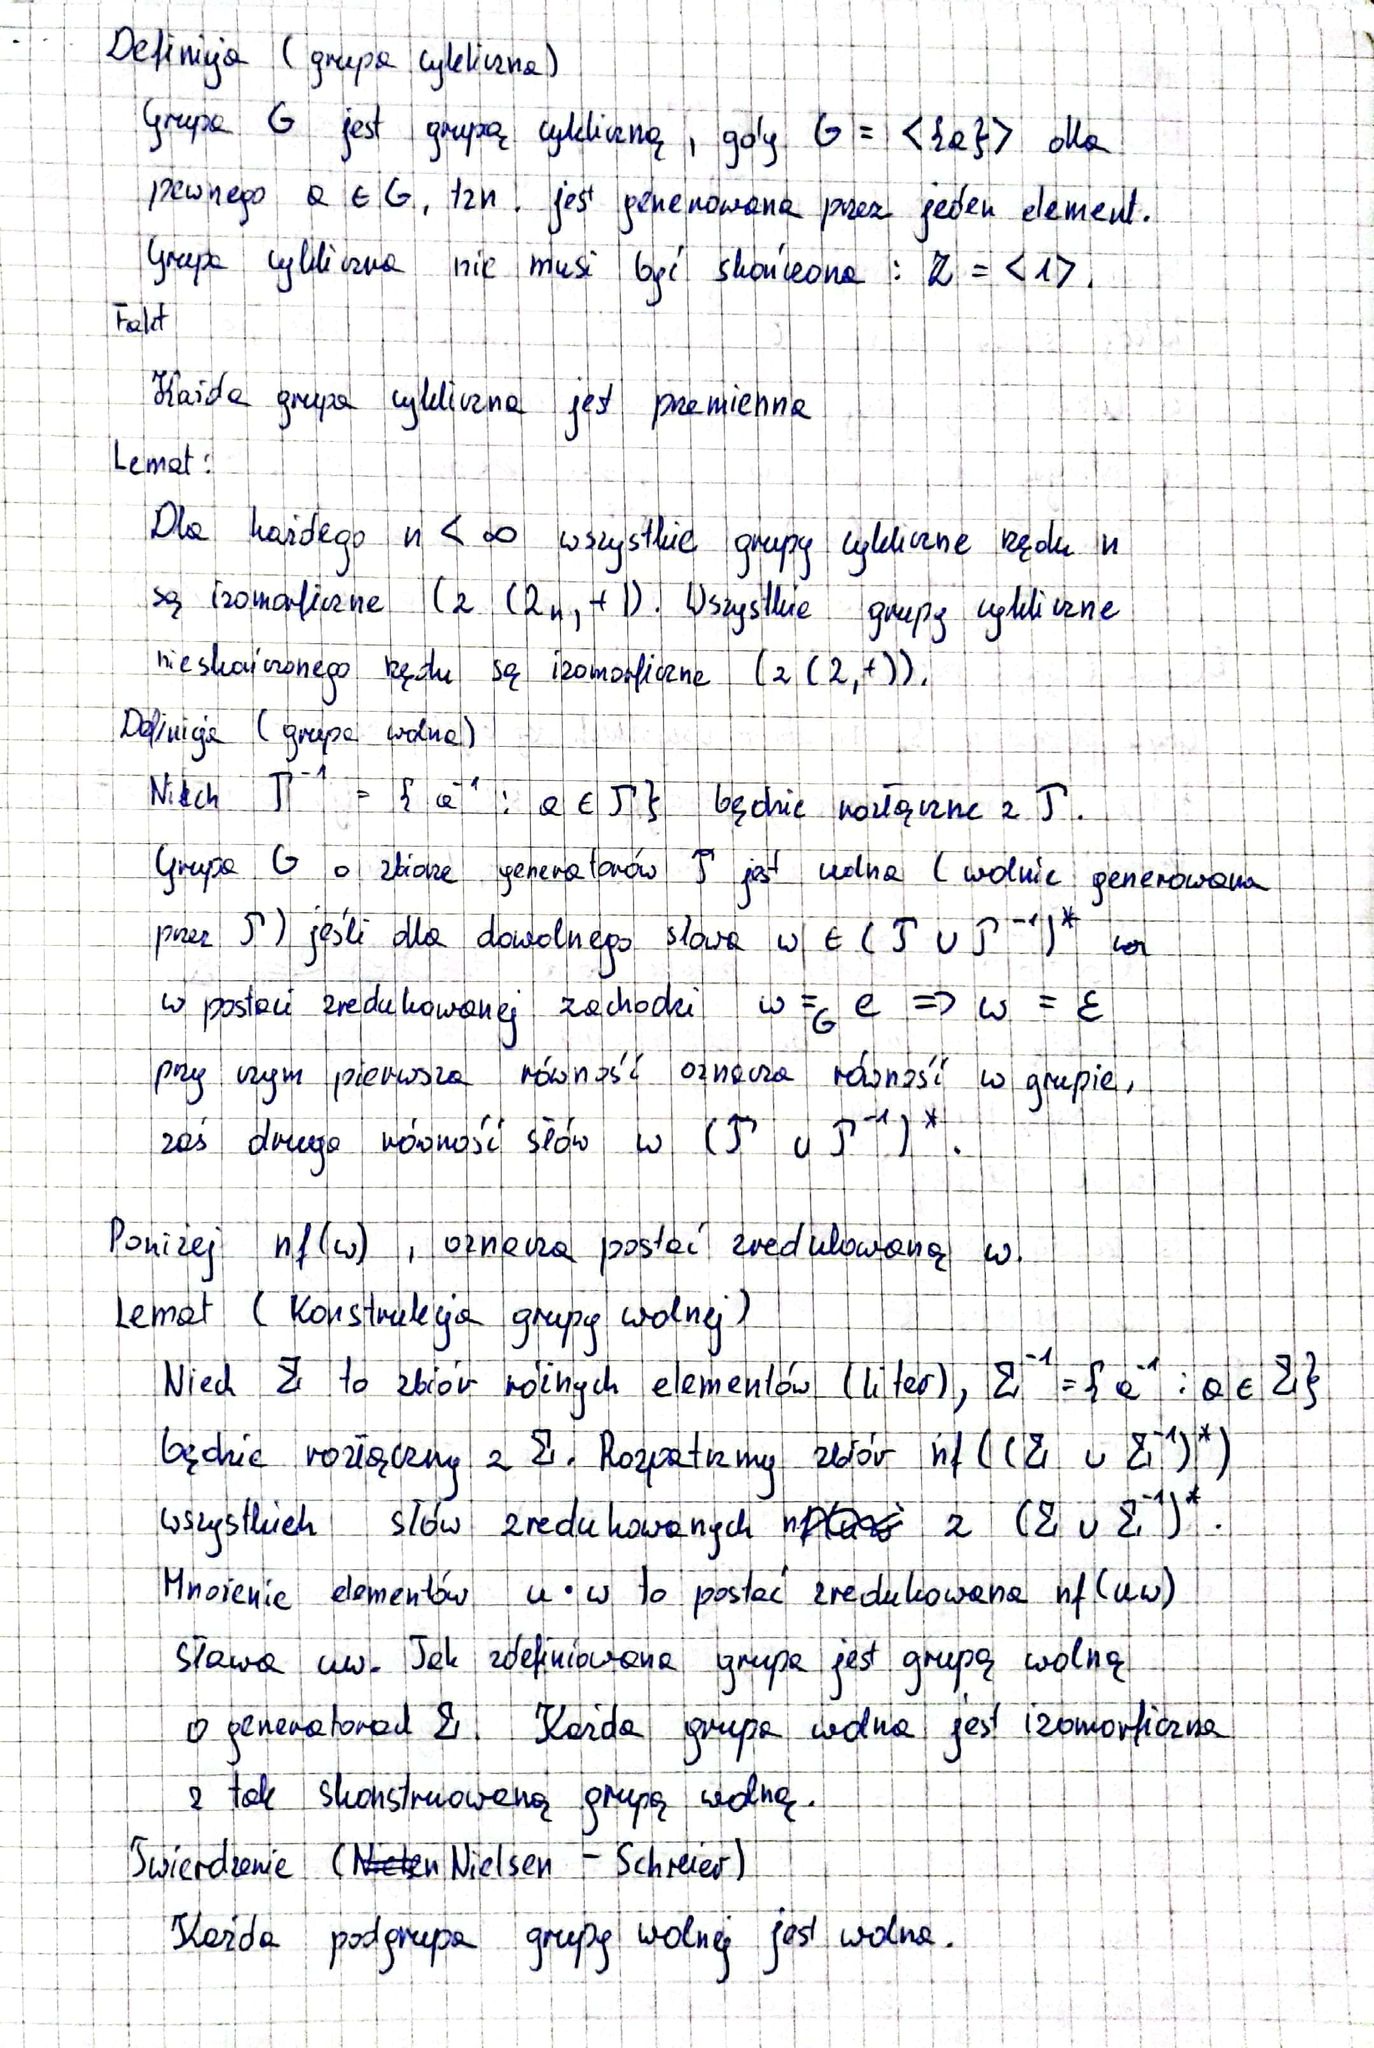 Definicja (grupa cykliczna)
Grupa G jest grupą cykliczną, gdy G = <{a}> dla
pewnego a ∈ G, tzn. jest generowana przez jeden element.
Grupa cykliczna nie musi być skończona : Z = <1>.
Fakt
Każda grupa cykliczna jest przemienna
Lemat:
Dla każdego n < ∞ wszystkie grupy cykliczne rzędu n
są izomorficzne (z (Z_n, +)). Wszystkie grupy cykliczne
nieskończonego rzędu są izomorficzne (z (Z, +)).
Definicja (grupa wolna)
Niech Γ^{-1} = { a^{-1} : a ∈ Γ} będzie rozłączne z Γ.
Grupa G o zbiorze generatorów Γ jest wolna (wolnie generowana
przez Γ) jeśli dla dowolnego słowa w ∈ (Γ ∪ Γ^{-1})^*
w postaci zredukowanej zachodzi w =_G e => w = ε
przy czym pierwsza równość oznacza równość w grupie,
zaś druga równość słów w (Γ ∪ Γ^{-1})^*.
Poniżej nf(w), oznacza postać zredukowaną w.
Lemat (Konstrukcja grupy wolnej)
Niech Σ to zbiór różnych elementów (liter), Σ^{-1} = { a^{-1} : a ∈ Σ}
będzie rozłączny z Σ. Rozpatrzmy zbiór nf((Σ ∪ Σ^{-1})^*)
wszystkich słów zredukowanych z (Σ ∪ Σ^{-1})^*.
Mnożenie elementów u · w to postać zredukowana nf(uw)
słowa uw. Tak zdefiniowana grupa jest grupą wolną
o generatorach Σ. Każda grupa wolna jest izomorficzna
z tak skonstruowaną grupą wolną.
Twierdzenie (Nielsen - Schreier)
Każda podgrupa grupy wolnej jest wolna.